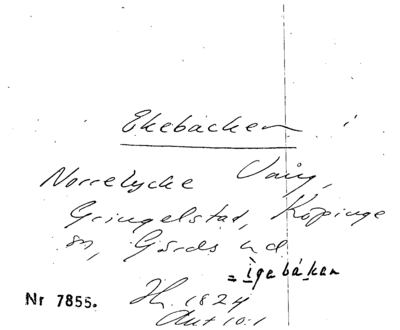 Ekebacken
Norrelycke Vång,
Gringelstad, Köpinge
sn, Gärds hd
= ìgebákan
Nr 7855.
H. 1824
Akt 10:1